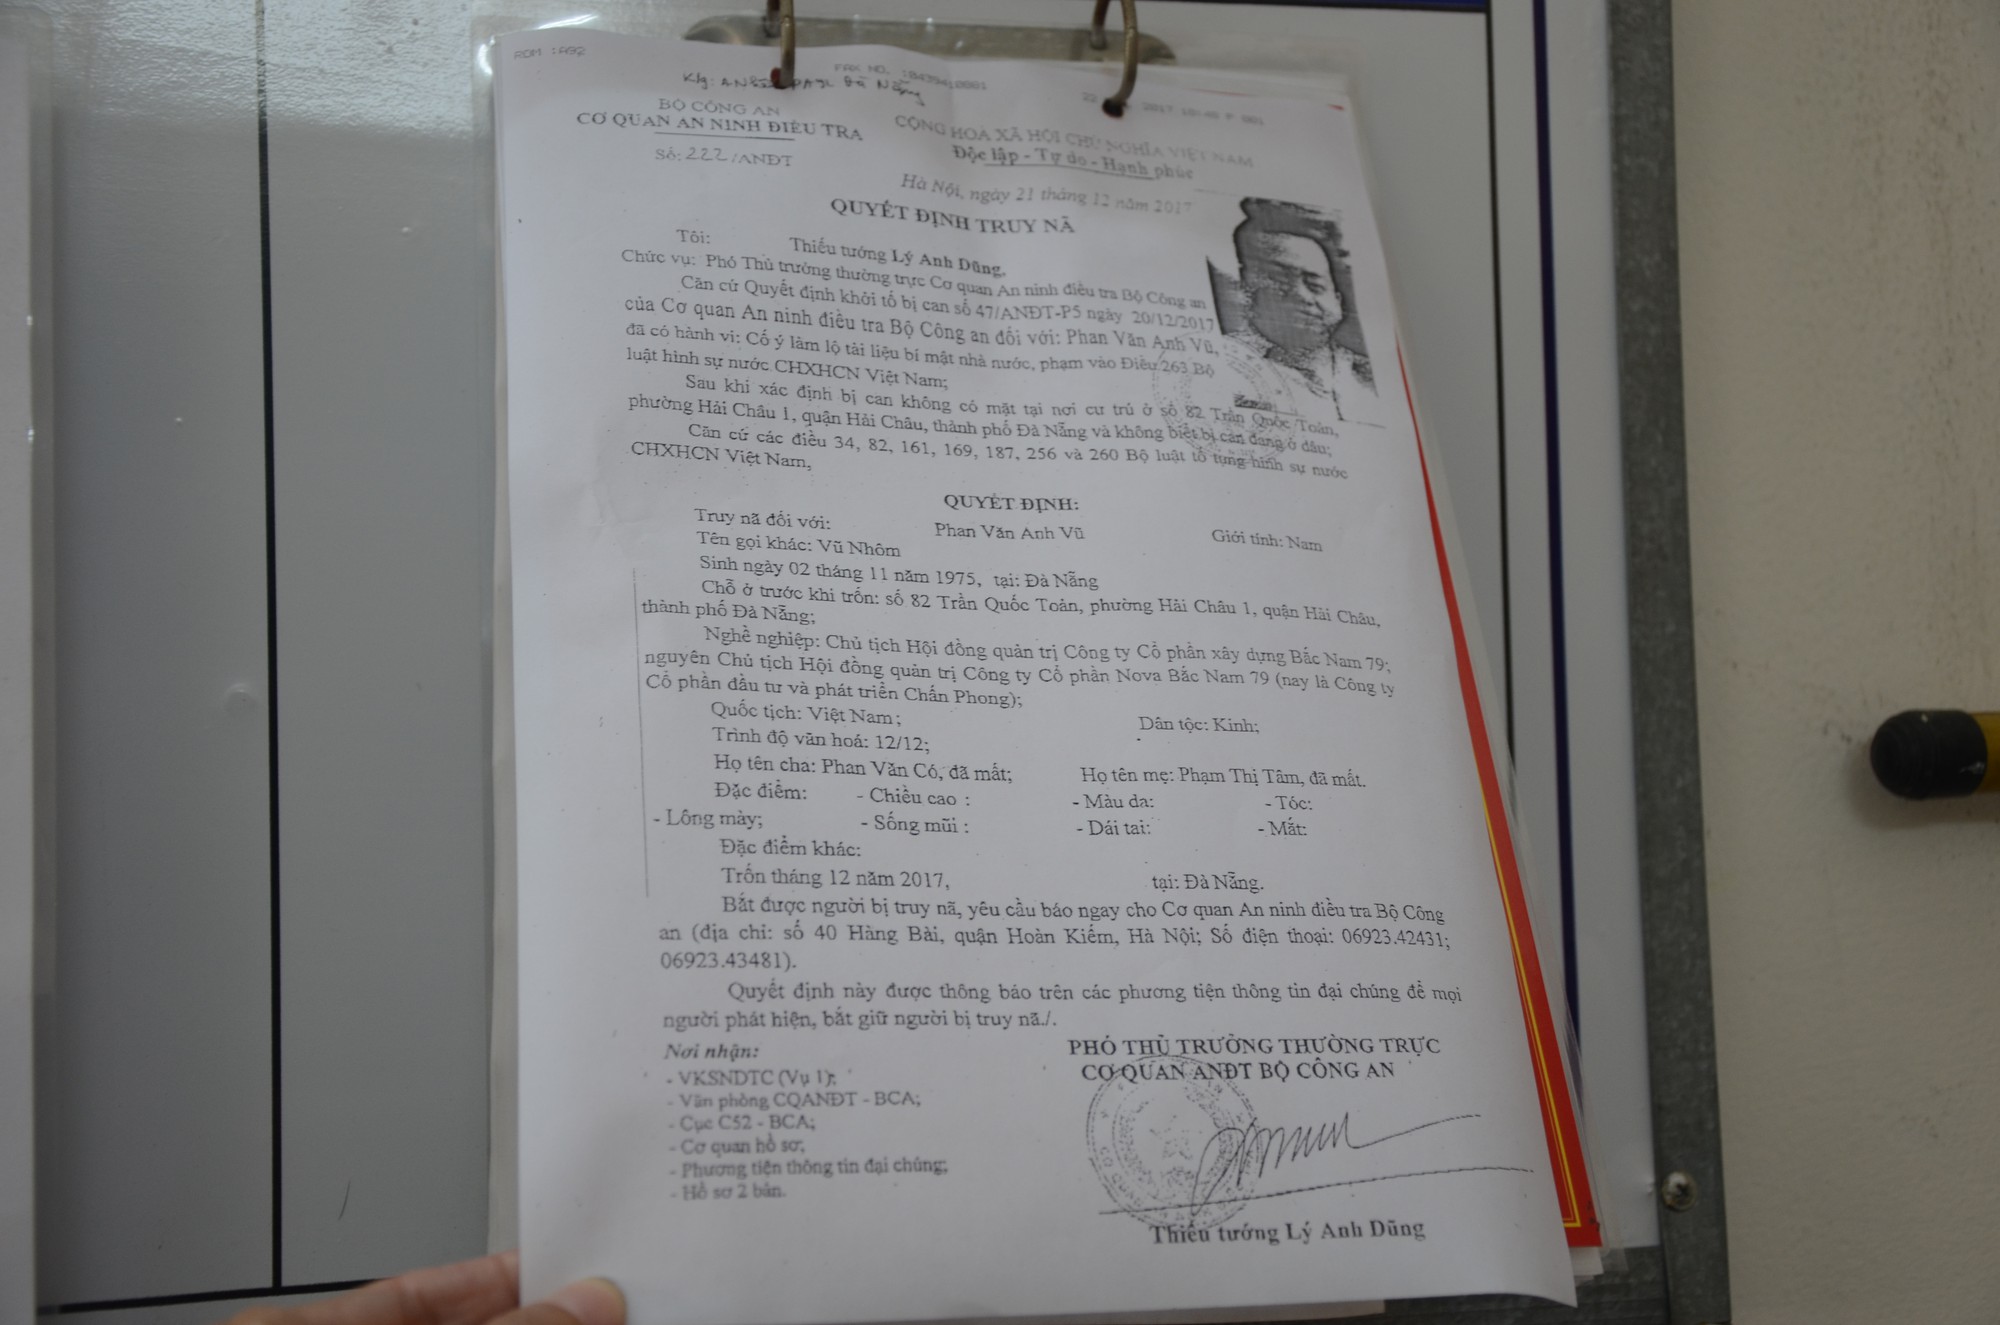 ROM :A92
FAX NO. :
K/g: Đà Nẵng
22 2017
BỘ CÔNG AN
CƠ QUAN AN NINH ĐIỀU TRA
Số: 222/ANĐT
CỘNG HOÀ XÃ HỘI CHỦ NGHĨA VIỆT NAM
Độc lập - Tự do - Hạnh phúc
Hà Nội, ngày 21 tháng 12 năm 2017
QUYẾT ĐỊNH TRUY NÃ
Tôi: Thiếu tướng Lý Anh Dũng,
Chức vụ: Phó Thủ trưởng thường trực Cơ quan An ninh điều tra Bộ Công an
Căn cứ Quyết định khởi tố bị can số 47/ANĐT-P5 ngày 20/12/2017
của Cơ quan An ninh điều tra Bộ Công an đối với: Phan Văn Anh Vũ,
đã có hành vi: Cố ý làm lộ tài liệu bí mật nhà nước, phạm vào Điều 263 Bộ
luật hình sự nước CHXHCN Việt Nam;
Sau khi xác định bị can không có mặt tại nơi cư trú ở số 82 Trần Quốc Toản,
phường Hải Châu 1, quận Hải Châu, thành phố Đà Nẵng và không biết bị can đang ở đâu;
Căn cứ các điều 34, 82, 161, 169, 187, 256 và 260 Bộ luật tố tụng hình sự nước
CHXHCN Việt Nam,
QUYẾT ĐỊNH:
Truy nã đối với: Phan Văn Anh Vũ Giới tính: Nam
Tên gọi khác: Vũ Nhôm
Sinh ngày 02 tháng 11 năm 1975, tại: Đà Nẵng
Chỗ ở trước khi trốn: số 82 Trần Quốc Toản, phường Hải Châu 1, quận Hải Châu,
thành phố Đà Nẵng;
Nghề nghiệp: Chủ tịch Hội đồng quản trị Công ty Cổ phần xây dựng Bắc Nam 79;
nguyên Chủ tịch Hội đồng quản trị Công ty Cổ phần Nova Bắc Nam 79 (nay là Công ty
Cổ phần đầu tư và phát triển Chấn Phong);
Quốc tịch: Việt Nam; Dân tộc: Kinh;
Trình độ văn hoá: 12/12;
Họ tên cha: Phan Văn Có, đã mất; Họ tên mẹ: Phạm Thị Tâm, đã mất.
Đặc điểm: - Chiều cao : - Màu da: - Tóc:
- Lông mày; - Sống mũi : - Dái tai: - Mắt:
Đặc điểm khác:
Trốn tháng 12 năm 2017, tại: Đà Nẵng.
Bắt được người bị truy nã, yêu cầu báo ngay cho Cơ quan An ninh điều tra Bộ Công
an (địa chỉ: số 40 Hàng Bài, quận Hoàn Kiếm, Hà Nội; Số điện thoại: 06923.42431;
06923.43481).
Quyết định này được thông báo trên các phương tiện thông tin đại chúng để mọi
người phát hiện, bắt giữ người bị truy nã./.
Nơi nhận:
- VKSNDTC (Vụ 1);
- Văn phòng CQANĐT - BCA;
- Cục C52 - BCA;
- Cơ quan hồ sơ;
- Phương tiện thông tin đại chúng;
- Hồ sơ 2 bản.
PHÓ THỦ TRƯỞNG THƯỜNG TRỰC
CƠ QUAN ANĐT BỘ CÔNG AN
Thiếu tướng Lý Anh Dũng